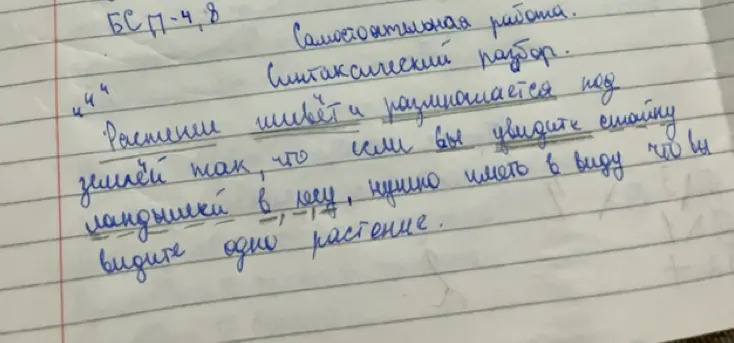 БСП-4,8
Самостоятельная работа.
Синтаксический разбор.
"4"
Растение живёт и размножается под
землёй так, что если вы увидите стайку
ландышей в лесу, нужно иметь в виду что вы
видите одно растение.